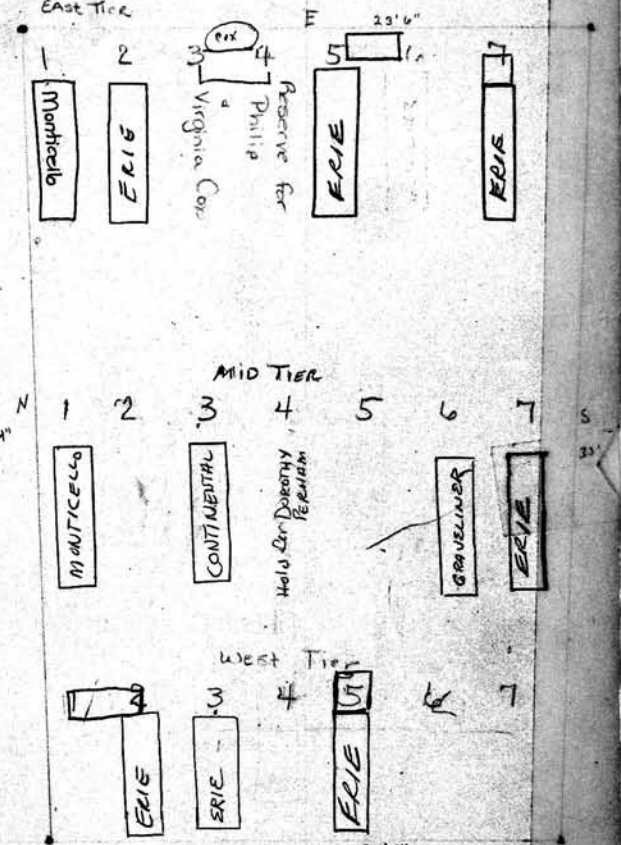 EAST TIER
E
23'6"
COX
1 2 3 4 5 6 7
Monticello
ERIE
Virginia Cox
&
Philip
Reserve for
ERIE
ERIE
MID TIER
N
1 2 3 4 5 6 7
S
33'
MONTICELLO
CONTINENTAL
Hold for DOROTHY
PERHAM
GRAVELINER
ERIE
West Tier
1 2 3 4 5 6 7
ERIE
ERIE
ERIE